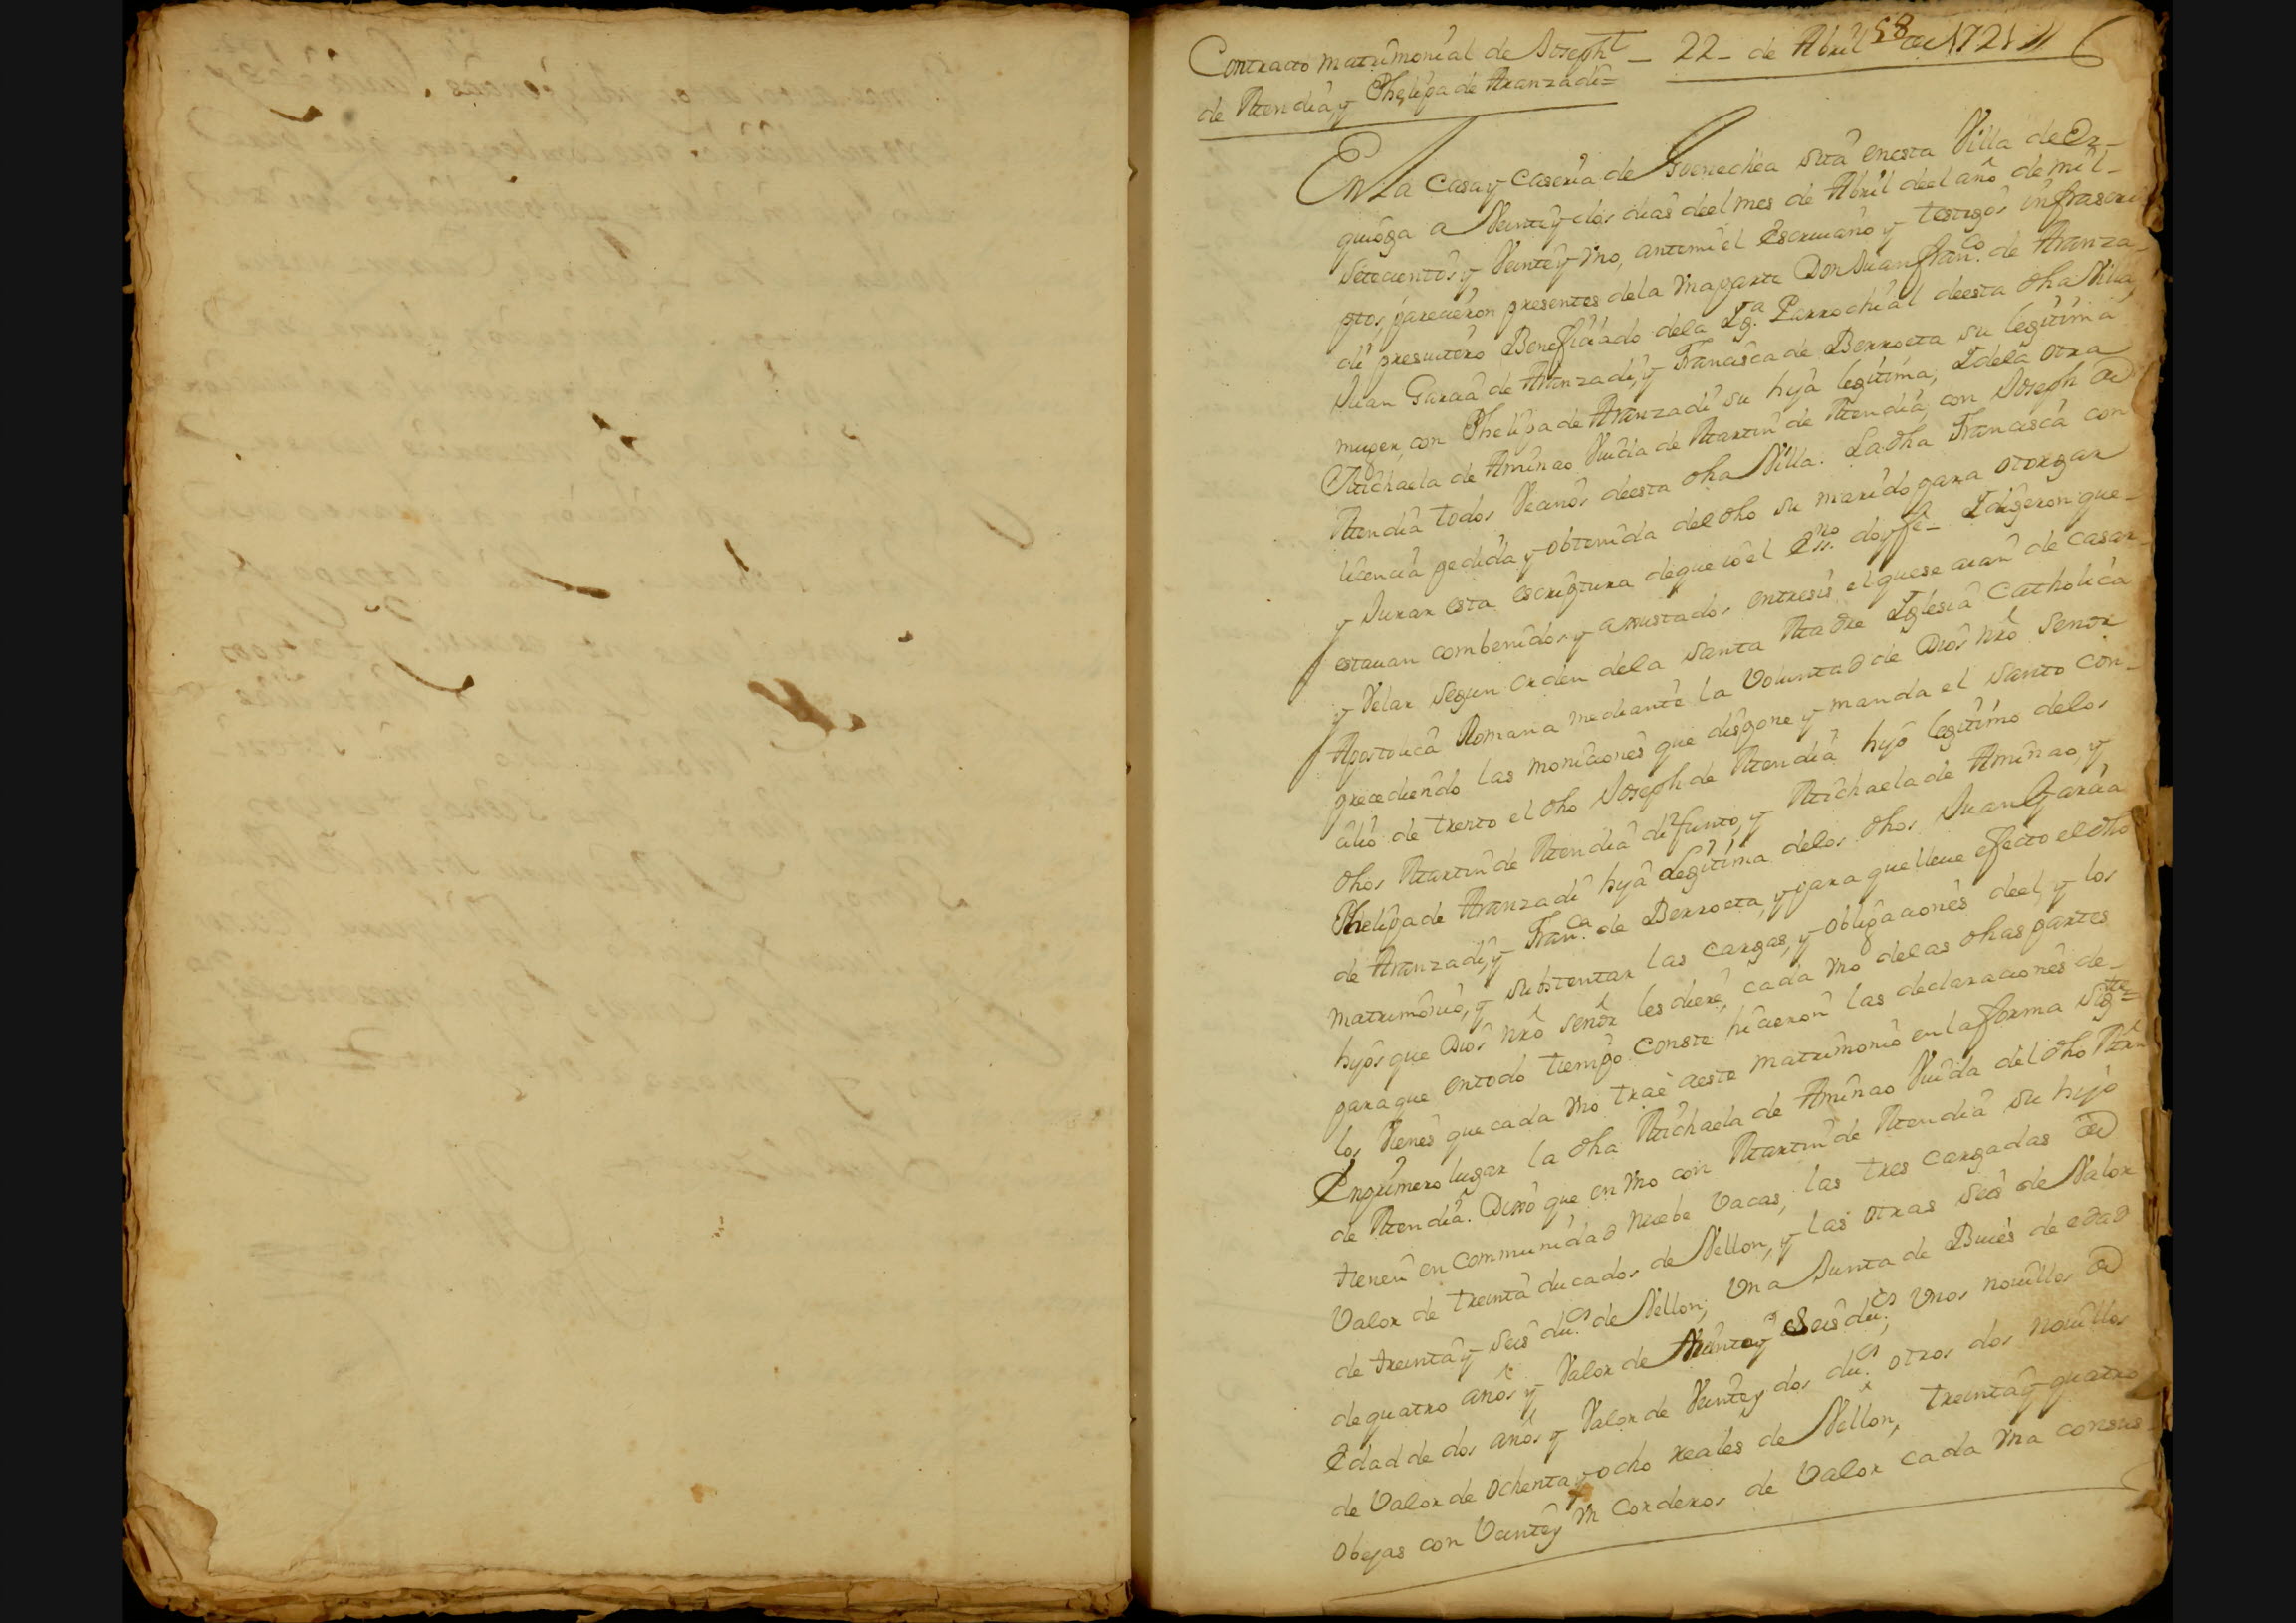 58
Contracto matrimonial de Joseph – 22 – de Abril de 1721 //
de Mendia, y Phelipa de Aranzadi =
En La Casa y Caseria de Goenechea sita en esta Villa de Ez-
quioga a Veinte y dos dias deel mes de Abril deel año de mil
Setecientos y Veinte y Vno, antemi el Escriuano y testigos infrascri
ptos, parecieron presentes dela Vna parte Don Juan Fran.co de Aranza-
di presuitero Beneficiado dela Yg.a Parrochial deesta dha Villa,
Juan Garcia de Aranzadi, y Francisca de Berroeta su legitima
muger, con Phelipa de Aranzadi su hija legitima, Y dela otra
Michaela de Aminao Viuda de Martin de Mendia, con Joseph de
Mendia todos Vecinos deesta dha Villa. La dha Francisca con
licencia pedida y obtenida del dho su marido para otorgar
y Jurar esta escriptura de que io el Es.no doy fe – Y dijeron que
estauan combenidos y ajustados entresi el que se aian de casar
y Velar segun orden dela Santa Madre Yglesia Catholica
Apostolica Romana mediante la Voluntad de Dios nro Senor
precediendo las moniciones que dispone y manda el Santo Con-
cilio de trento el dho Joseph de Mendia hijo legitimo delos
dhos Martin de Mendia difunto, y Michaela de Aminao, y
Phelipa de Aranzadi hija Legitima delos dhos Juan Garcia
de Aranzadi, y Fran.ca de Berroeta, y para que lleue efecto el dho
matrimonio, y substentar las cargas, y obligaciones deel, y los
hijos que Dios nro Senor les diere, cada Vno delas dhas partes
para que entodo tiempo Conste hicieron las declaraciones de-
los Vienes que cada Vno trae aeste matrimonio en la forma sig.te =
En primero lugar la dha Michaela de Aminao Viuda del dho Mrn
de Mendia. Dixo que en Vno con Martin de Mendia su hijo
tienen en Communidad nuebe Vacas, las tres cargadas de
Valor de treinta ducados de Vellon, y las otras seis de Valor
de treinta y seis du.s de Vellon; Vna Junta de Buies de edad
de quatro años y Valor de treinta y Seis du.s; Vnos nouillos de
Edad de dos años y Valor de Veinte y dos du.s otros dos nouillos
de Valor de ochenta y ocho reales de Vellon, treinta y quatro
Obejas con Veinte y Vn Corderos de Valor cada Vna consus